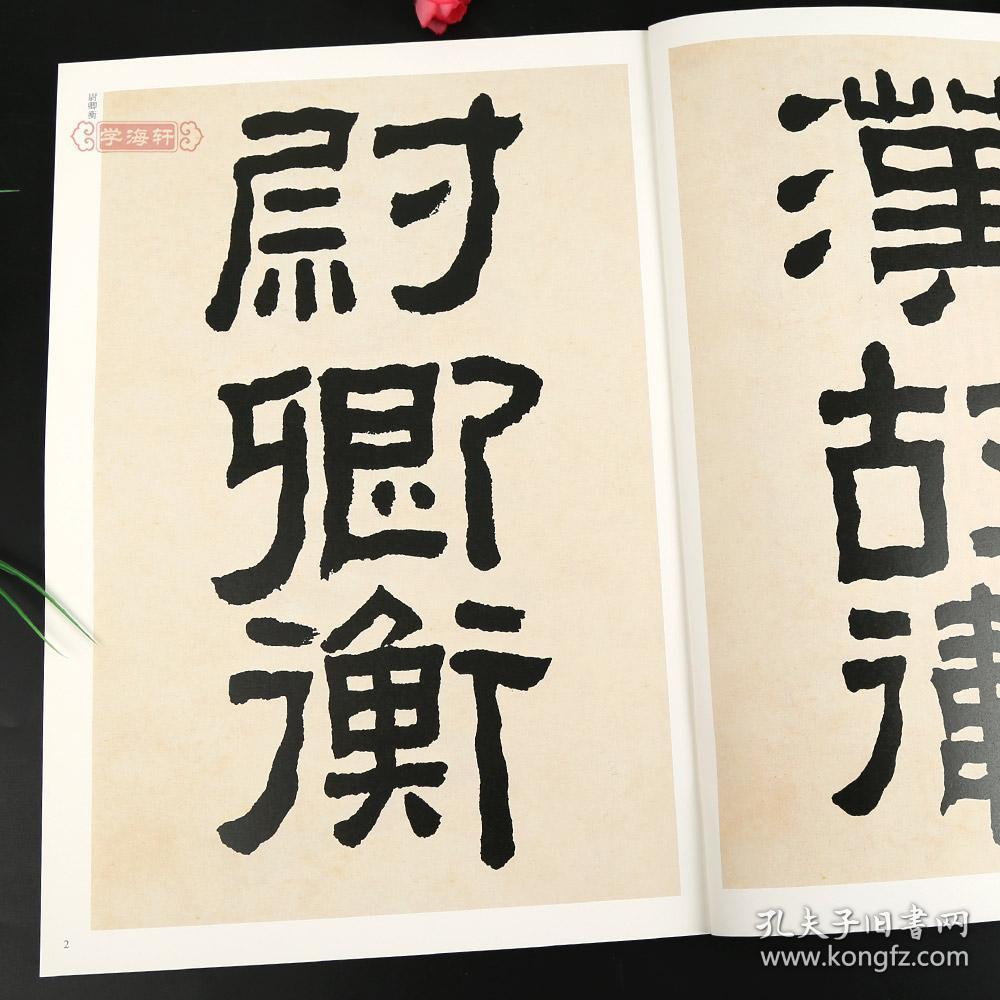 尉卿衡
学海轩
尉
卿
衡
漢
故
2
孔夫子旧書网
www.kongfz.com